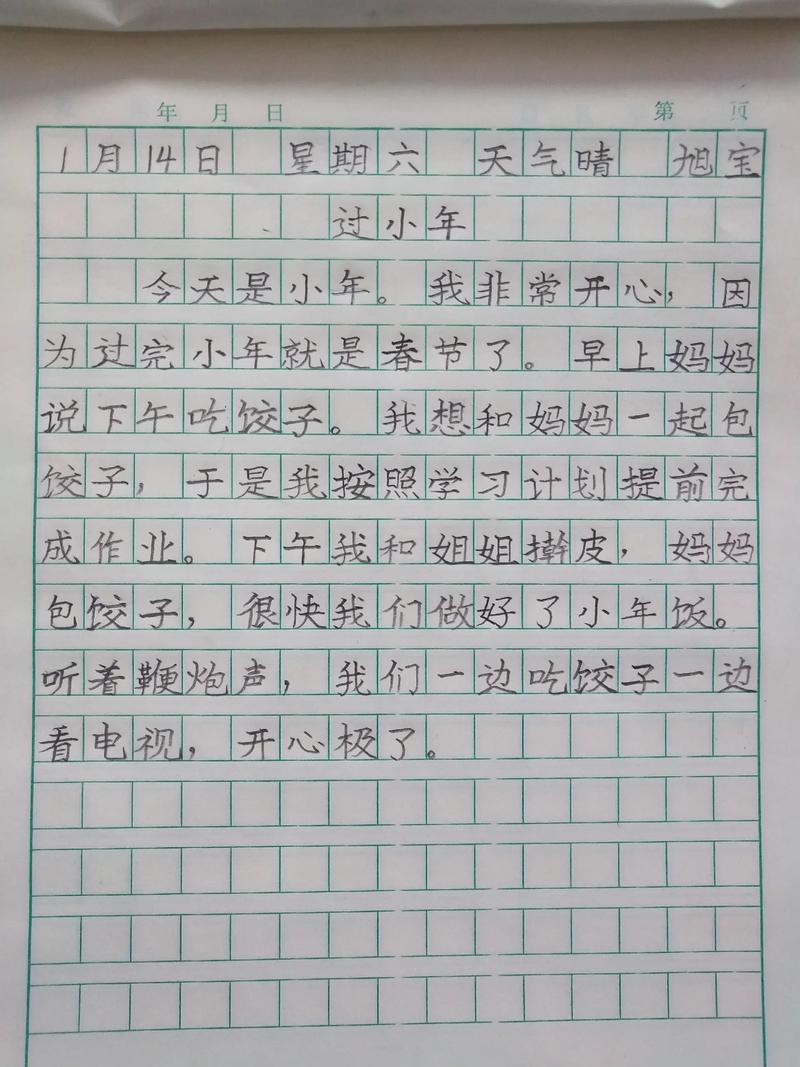 年 月 日 第 页
1月14日 星期六 天气晴 旭宝
过小年
今天是小年。我非常开心，因
为过完小年就是春节了。早上妈妈
说下午吃饺子。我想和妈妈一起包
饺子，于是我按照学习计划提前完
成作业。下午我和姐姐擀皮，妈妈
包饺子，很快我们做好了小年饭。
听着鞭炮声，我们一边吃饺子一边
看电视，开心极了。